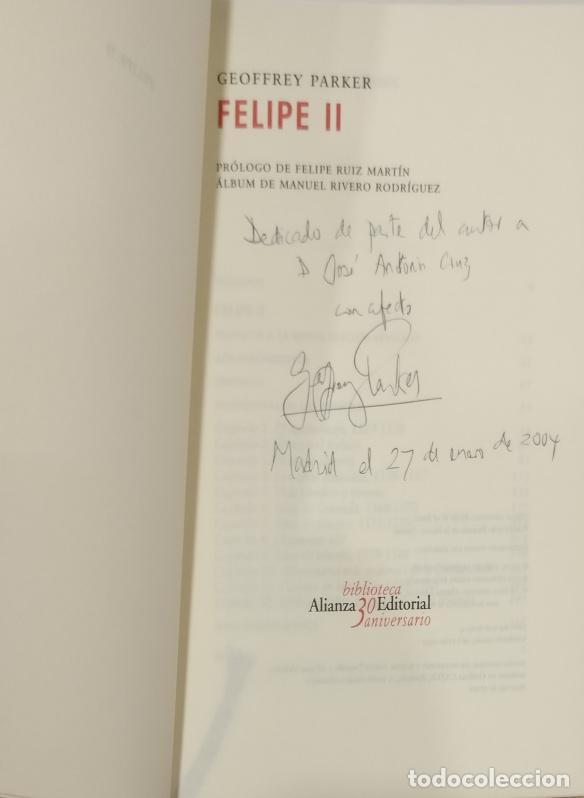 GEOFFREY PARKER
FELIPE II
PRÓLOGO DE FELIPE RUIZ MARTÍN
ÁLBUM DE MANUEL RIVERO RODRÍGUEZ
Dedicado de parte del autor a
D José Antonio Cruz
con afecto
Geoffrey Parker
Madrid el 27 de enero de 2004
biblioteca
Alianza 30 Editorial
aniversario
todocoleccion